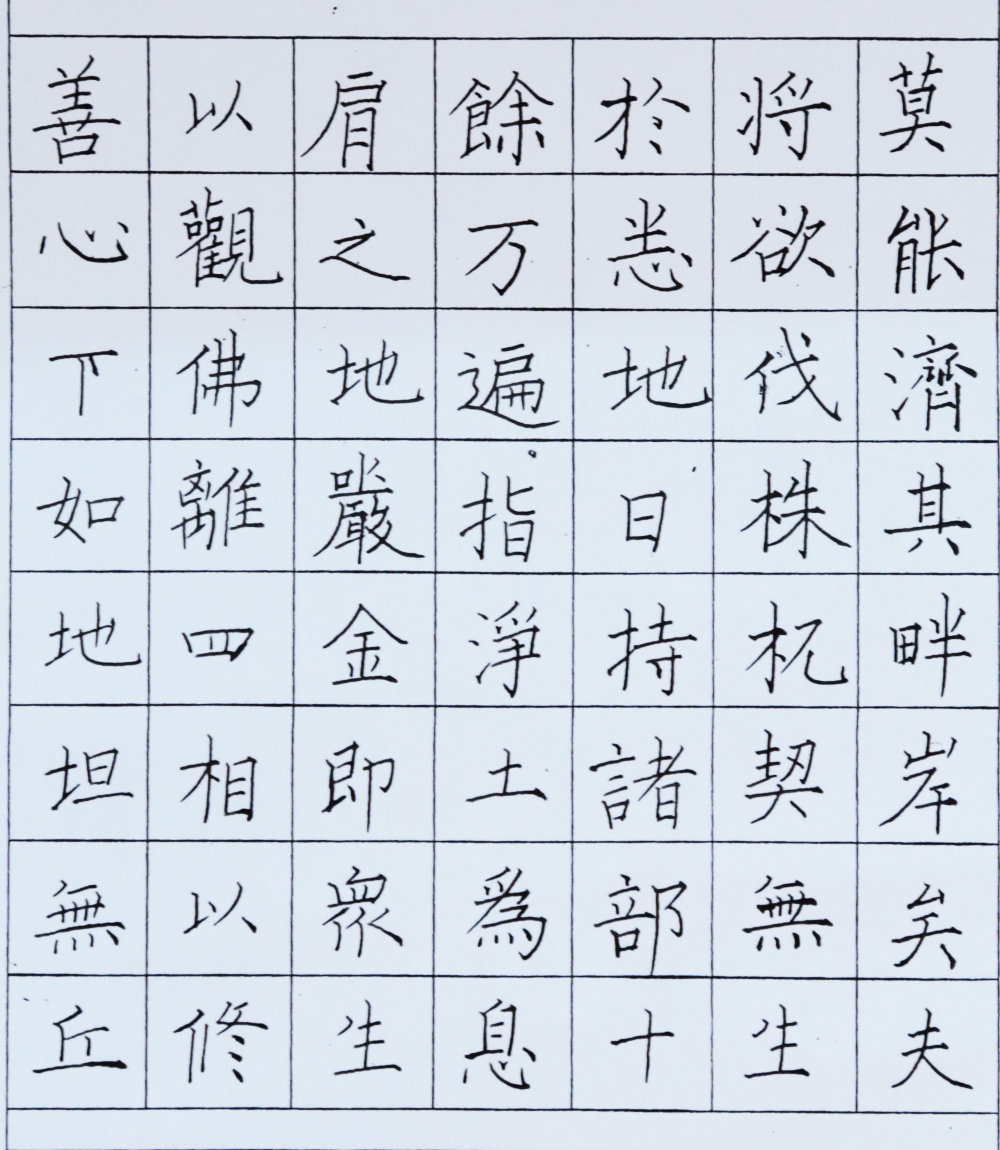 莫能濟其畔岸矣夫
将欲伐株杌契無生
於恙地日持諸部十
餘万遍指淨土爲息
肩之地嚴金即眾生
以觀佛離四相以修
善心下如地坦無丘